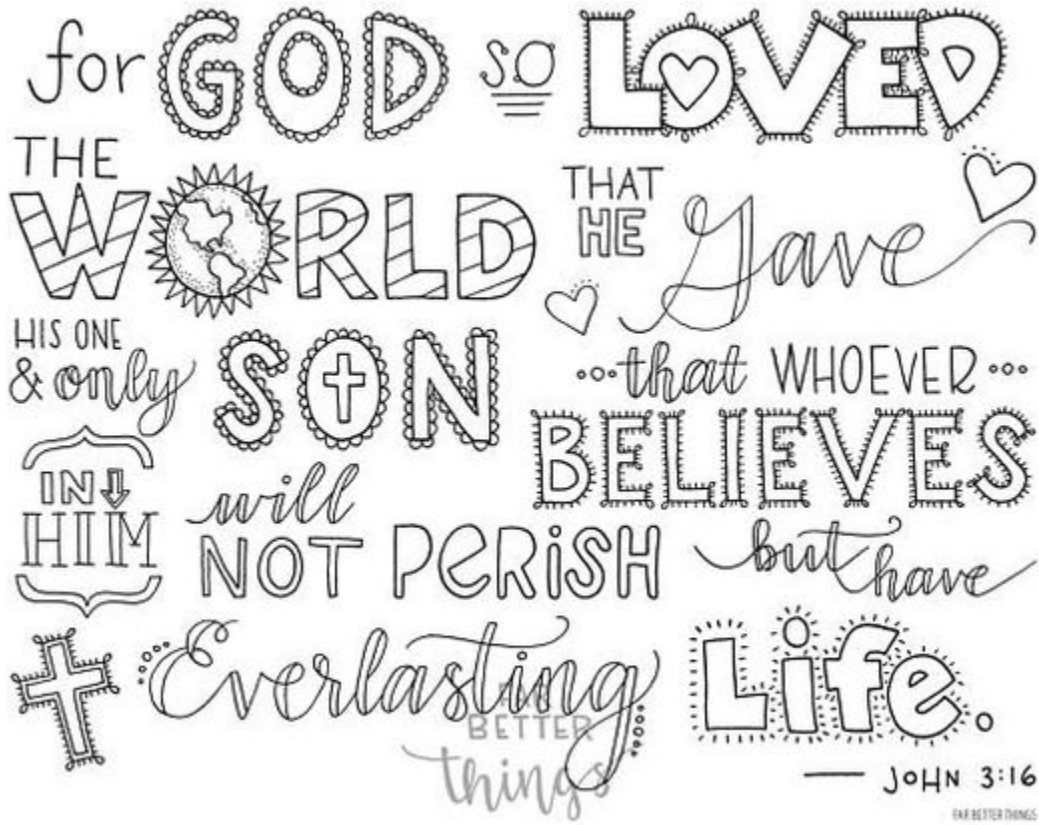 for GOD so LOVED
THE
WORLD
THAT
HE
Gave
HIS ONE
& only
SON
that WHOEVER
BELIEVES
IN
HIM
will
NOT PERiSH
but have
Everlasting
Life.
— JOHN 3:16
FAR
BETTER
things
FAR BETTER THINGS